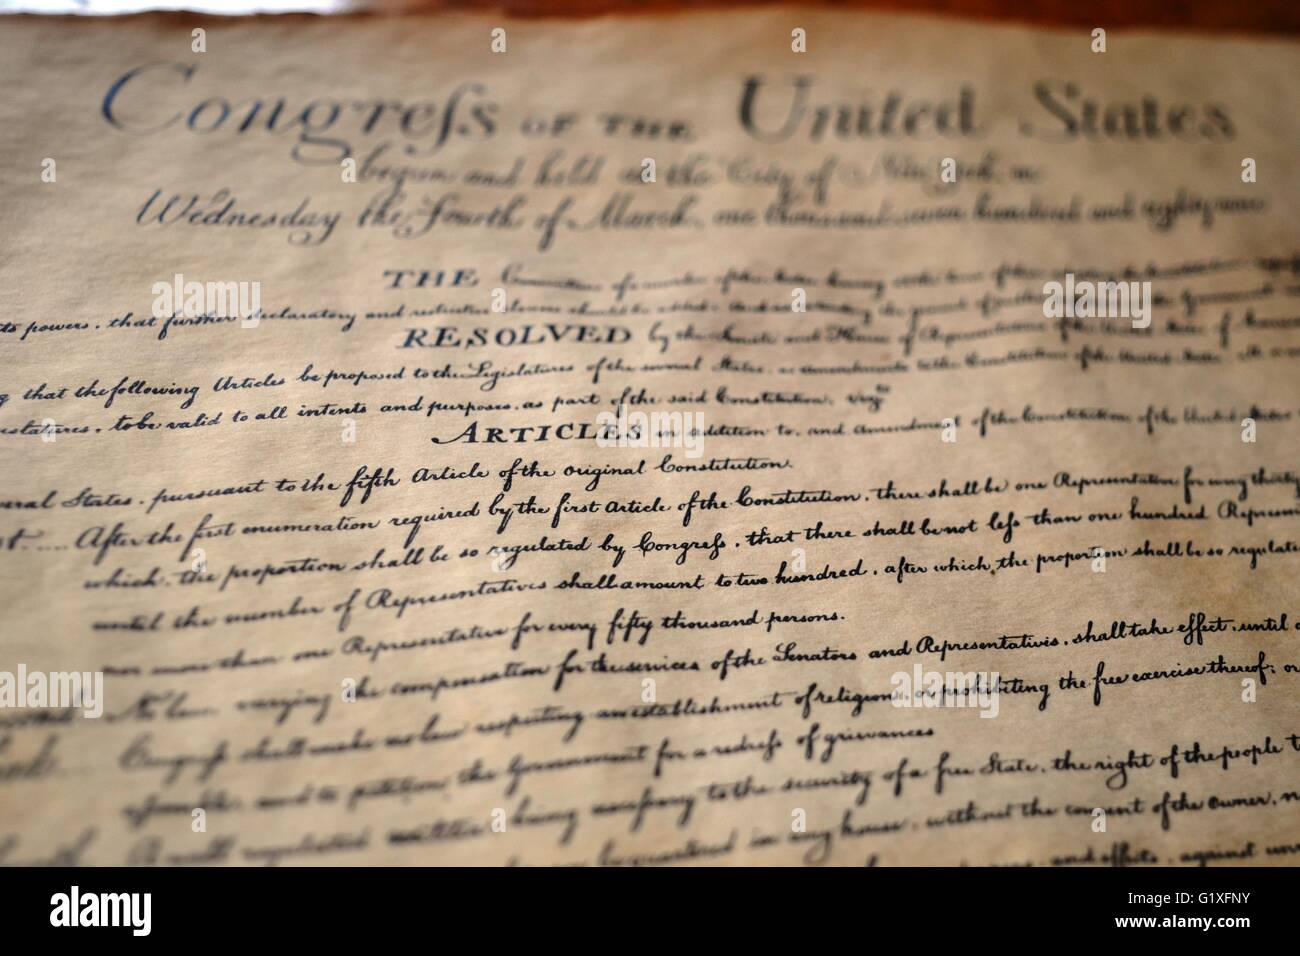 Congreſs OF THE United States
begun and held at the City of New York, on
Wednesday the Fourth of March, one thousand seven hundred and eighty nine
THE
its powers, that further declaratory and restrictive clauses should be added
RESOLVED by the Senate and House of Representatives of the United States of America
that the following Articles be proposed to the Legislatures of the several States, as amendments to the Constitution of the United States
to be valid to all intents and purposes, as part of the said Constitution, vizt
ARTICLES in addition to, and amendment of the Constitution of the United States
States, pursuant to the fifth Article of the original Constitution.
After the first enumeration required by the first Article of the Constitution, there shall be one Representative for every thirty
which, the proportion shall be so regulated by Congreſs, that there shall be not leſs than one hundred
until the number of Representatives shall amount to two hundred, after which, the proportion shall be so
nor more than one Representative for every fifty thousand persons.
No law varying the compensation for the services of the Senators and Representatives, shall take effect, until
Congreſs shall make no law respecting an establishment of religion, or prohibiting the free exercise thereof; or
and to petition the Government for a redreſs of grievances
A well regulated militia being neceſsary to the security of a free State, the right of the people
quartered in any house, without the consent of the owner,
and effects, against
alamy
Image ID: G1XFNY
www.alamy.com